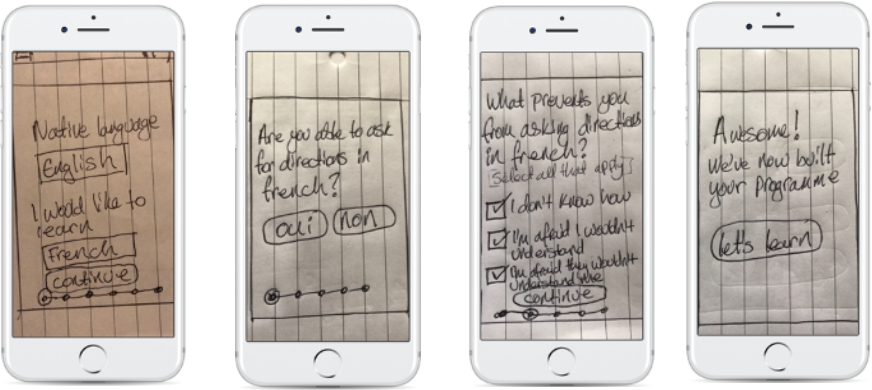 Native language
English
I would like to
learn
French
continue
Are you able to ask
for directions in
french?
oui non
What prevents you
from asking directions
in french?
[Select all that apply]
I don't know how
I'm afraid I wouldn't
understand
I'm afraid they wouldn't
understand me
continue
Awesome!
We've now built
your programme
let's learn